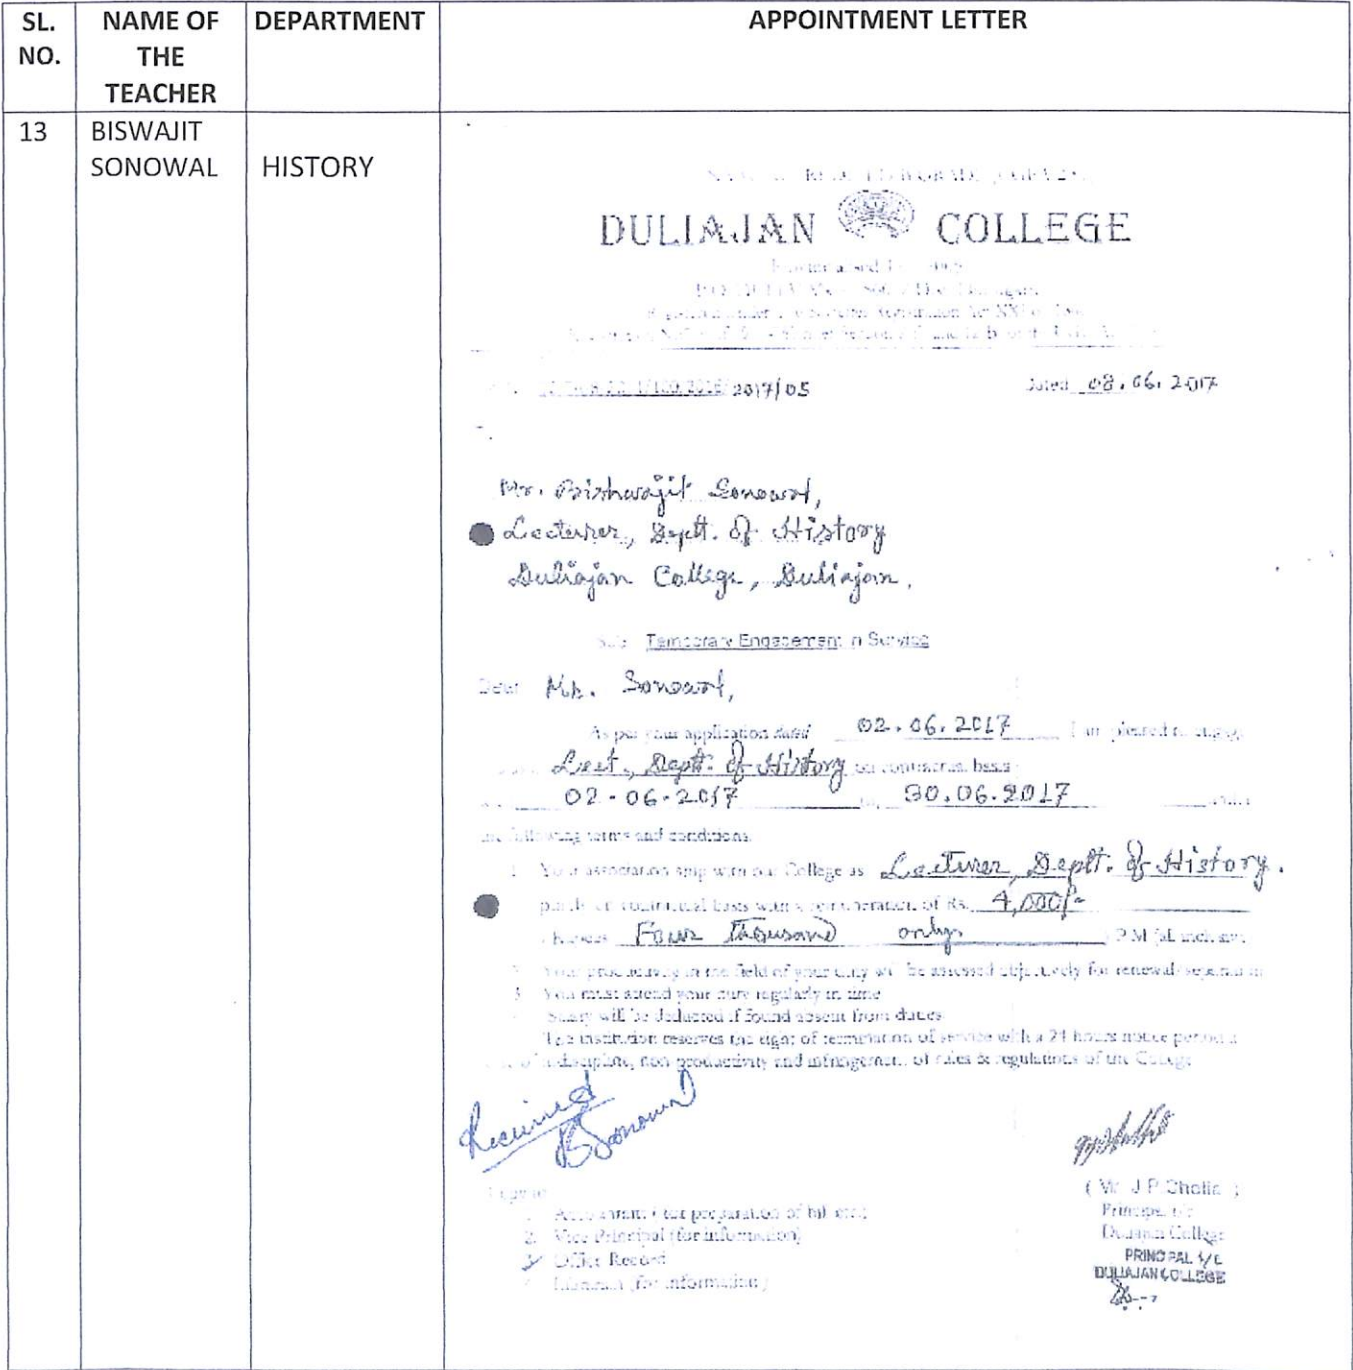 SL. NO.
NAME OF THE TEACHER
DEPARTMENT
APPOINTMENT LETTER
13
BISWAJIT SONOWAL
HISTORY
DULIAJAN COLLEGE
2017/05
Dated 08.06.2017
Mr. Bishwajit Sonowal,
Lecturer, Deptt. of History
Duliajan College, Duliajan.
Sub: Temporary Engagement in Service
Dear Mr. Sonowal,
As per your application dated 02.06.2017 I am pleased to engage
Lect., Deptt. of History on contractual basis
02-06-2017 to 30.06.2017 under
the following terms and conditions.
1. Your association ship with our College as Lecturer, Deptt. of History.
purely on contractual basis with a remuneration of Rs. 4,000/-
(Rupees Four thousand only ) P.M (all inclusive
2. Your productivity in the field of your duty will be assessed objectively for renewal/separation
3. You must attend your duty regularly in time
Salary will be deducted if found absent from duties
The institution reserves the right of termination of service with a 24 hours notice period
indiscipline, non productivity and infringement of rules & regulations of the College
Received
BSonowal
Copy to
1. Accountant (for preparation of bill etc.)
2. Vice Principal (for information)
3. Office Record
4. (for information)
( Mr. J.P. )
Principal i/c
Duliajan College
PRINCIPAL I/C
DULIAJAN COLLEGE